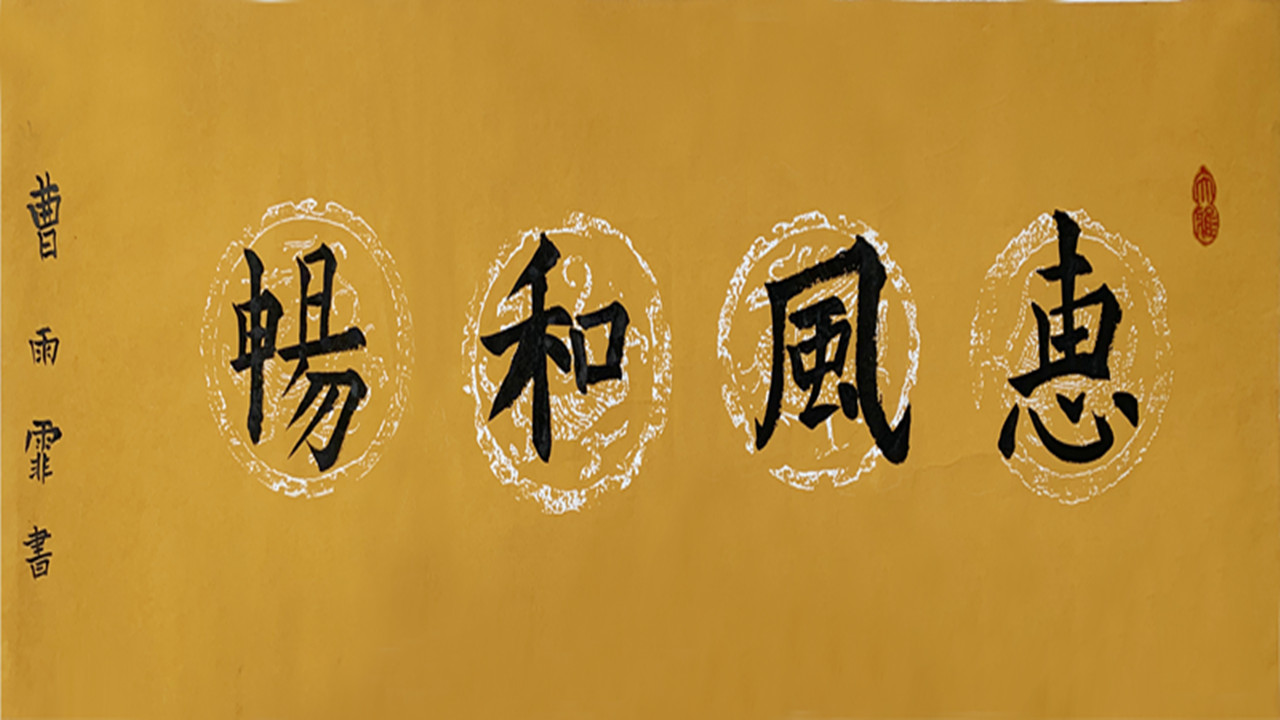 惠風和暢
曹雨霏書